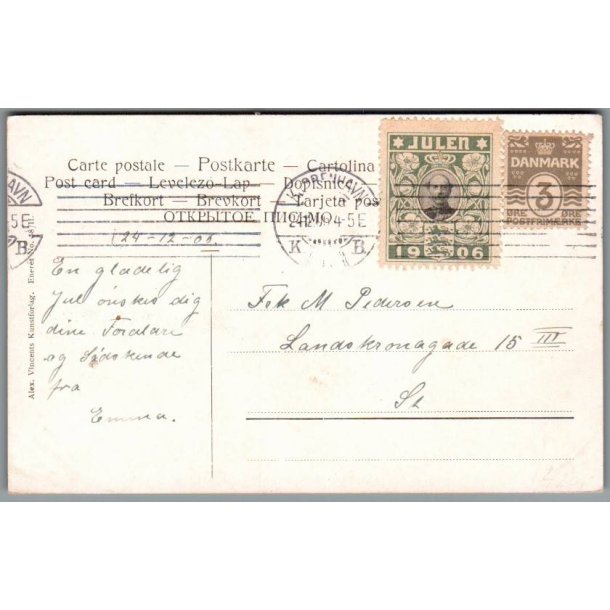 JULEN
1906
DANMARK
3
ØRE ØRE
POSTFRIMÆRKE
Carte postale — Postkarte — Cartolina
Post card — Levelezo-Lap — Dopisnice
Brefkort — Brevkort — Tarjeta pos
ОТКРЫТОЕ ПИСЬМО
KJØBENHAVN
24.12.0 4-5E
K B.
HAVN
5E
B.
(24-12-06.
En glædelig
Jul ønskes dig
dine Forældre
og Sødskende
fra
Emma.
Frk M Pedersen
Landskronagade 15 III
St
Alex. Vincents Kunstforlag. Eneret No.